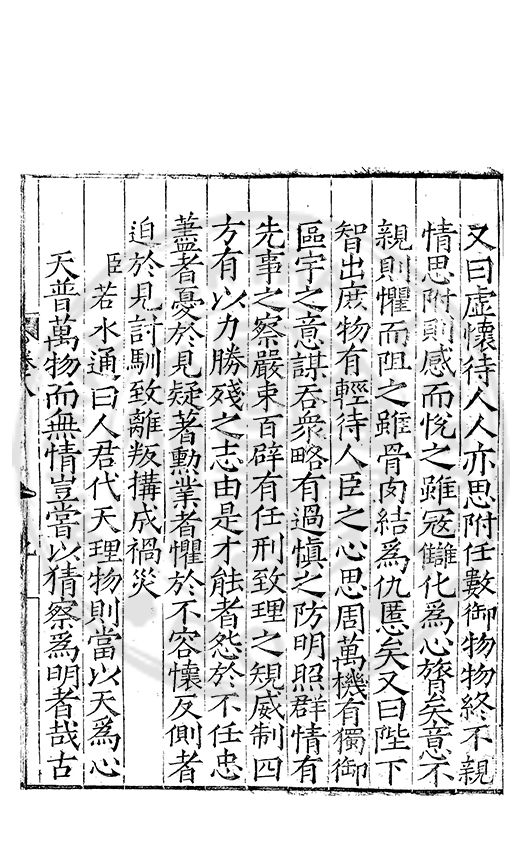 又曰虛懷待人人亦思附任數御物物終不親
情思附則感而悅之雖寇讎化爲心膂矣意不
親則懼而阻之雖骨肉結爲仇慝矣又曰陛下
智出庶物有輕待人臣之心思周萬機有獨御
區宇之意謀吞衆略有過慎之防明照群情有
先事之察嚴束百辟有任刑致理之規威制四
方有以力勝殘之志由是才能者怨於不任忠
藎者憂於見疑著勳業者懼於不容懷反側者
迫於見討馴致離叛搆成禍災
臣若水通曰人君代天理物則當以天爲心
天普萬物而無情豈嘗以猜察爲明者哉古
卷八